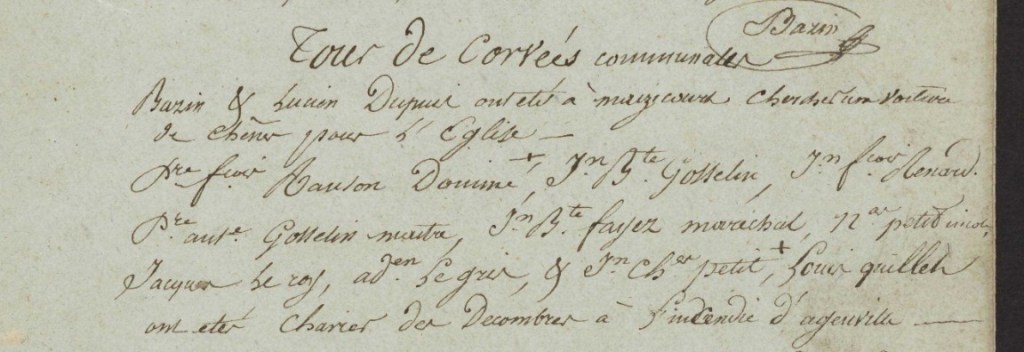 Bazin
Tour de Corveés communales
Bazin & Lucien Dupuis ont etés à maizicourt chercher un voiture
de chêne pour L'Eglise —
Pre fçois Tauson Dominé +, Jn Bte Gosselin, Jn fçois Renard.
Pre ante Gosselin maitre, Jn Bte fayez marechal, petit
Jacques Le roy, aden Le gris, & Jn Chles petit +, Louis quillet
ont etés charier des Decombres à L'incendie d'agenville —